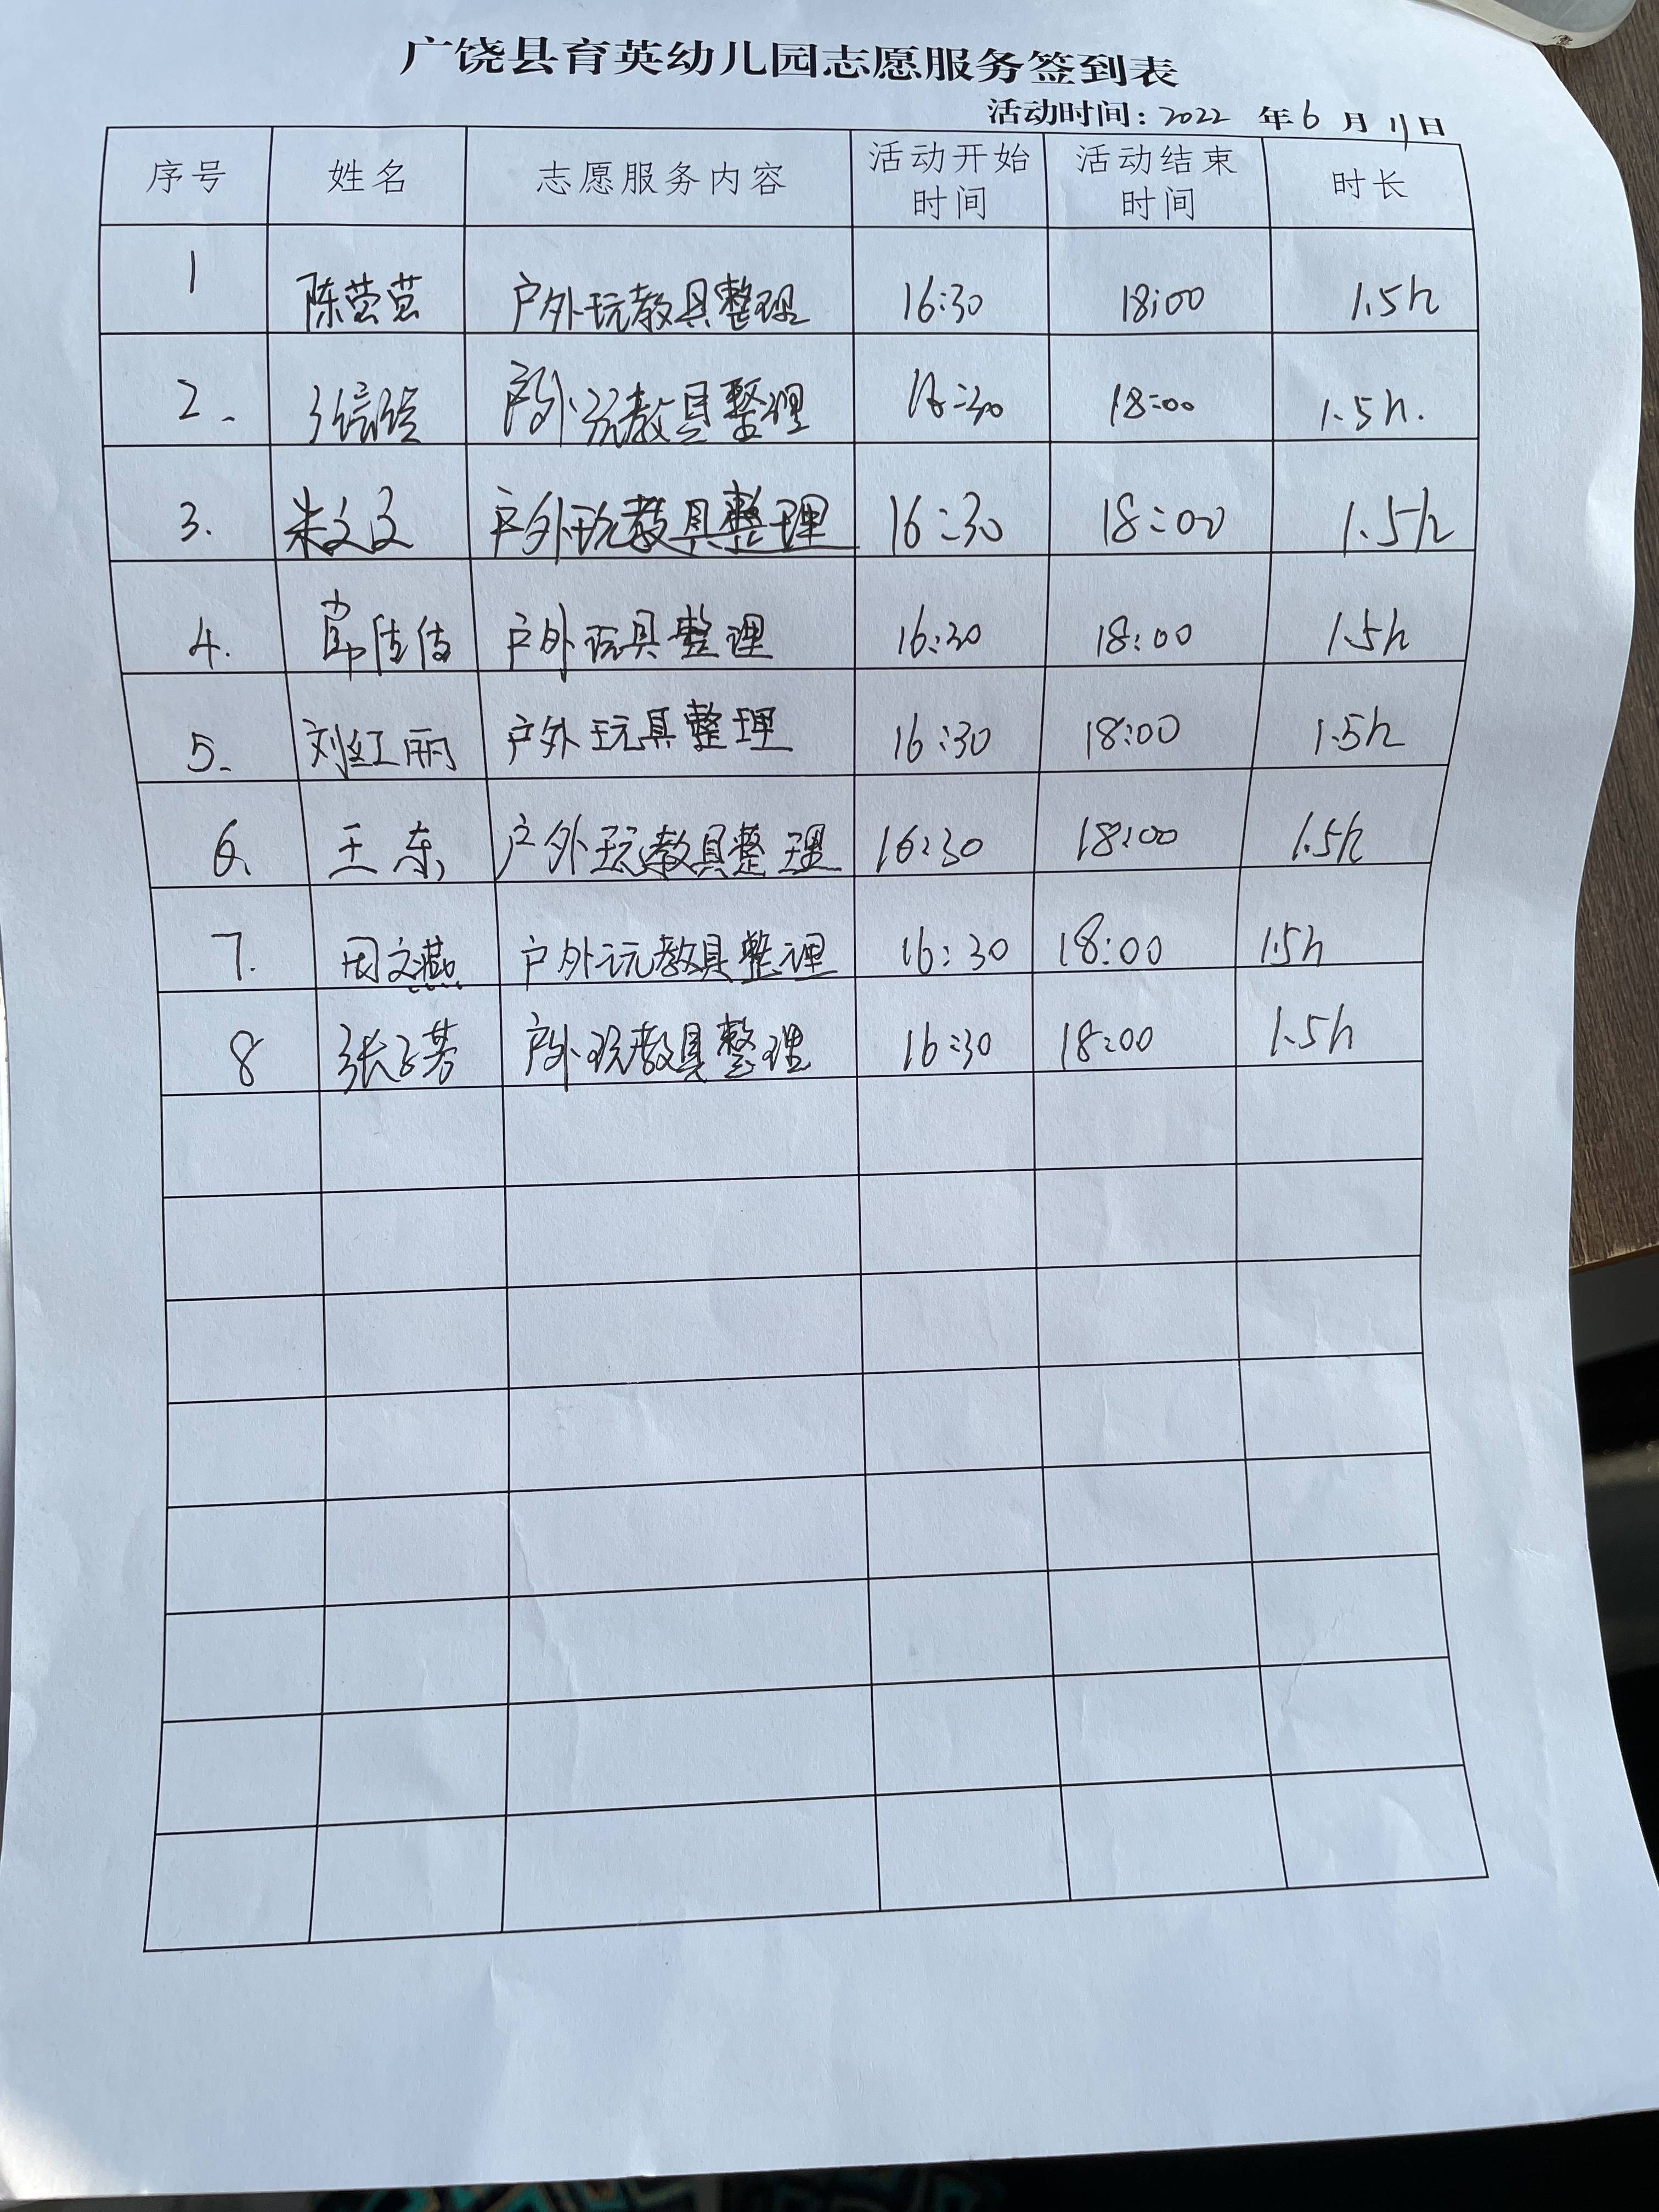 广饶县育英幼儿园志愿服务签到表
活动时间：2022 年 6 月 11 日
序号 姓名 志愿服务内容 活动开始时间 活动结束时间 时长
1 陈莹莹 户外玩教具整理 16:30 18:00 1.5h
2. 户外玩教具整理 16:30 18:00 1.5h.
3. 朱文文 户外玩教具整理 16:30 18:00 1.5h
4. 户外玩具整理 16:30 18:00 1.5h
5. 刘红丽 户外玩具整理 16:30 18:00 1.5h
6. 王东 户外玩教具整理 16:30 18:00 1.5h
7. 周文燕 户外玩教具整理 16:30 18:00 1.5h
8 张子芳 户外玩教具整理 16:30 18:00 1.5h